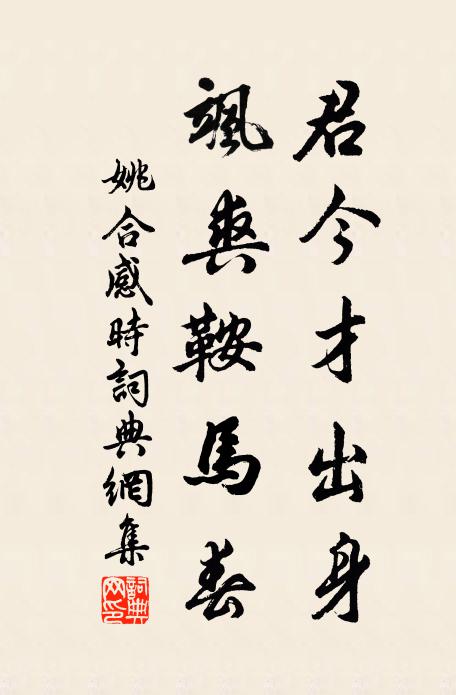 君今才出身
颯爽鞍馬春
姚合感時詞典網集
詞典網印